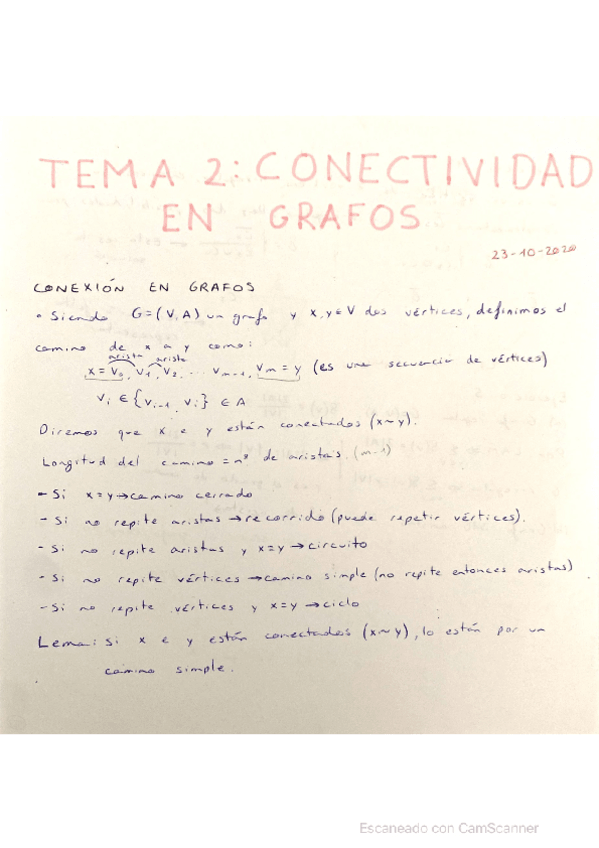 TEMA 2: CONECTIVIDAD
EN GRAFOS
23-10-2020
CONEXIÓN EN GRAFOS
• Siendo G=(V,A) un grafo y x,y∈V dos vértices, definimos el
camino de x a y como:
arista ariste
x = V₀, V₁, V₂, ... Vₘ₋₁, Vₘ = y (es una secuencia de vértices)
Vᵢ ∈ {Vᵢ₋₁, Vᵢ} ∈ A
Diremos que x e y están conectados (x~y).
Longitud del camino = nº de aristas. (m-1)
- Si x=y → camino cerrado
- Si no repite aristas → recorrido (puede repetir vértices).
- Si no repite aristas y x=y → circuito
- Si no repite vértices → camino simple (no repite entonces aristas)
- Si no repite vértices y x=y → ciclo
Lema: si x e y están conectados (x~y), lo están por un
camino simple.
Escaneado con CamScanner